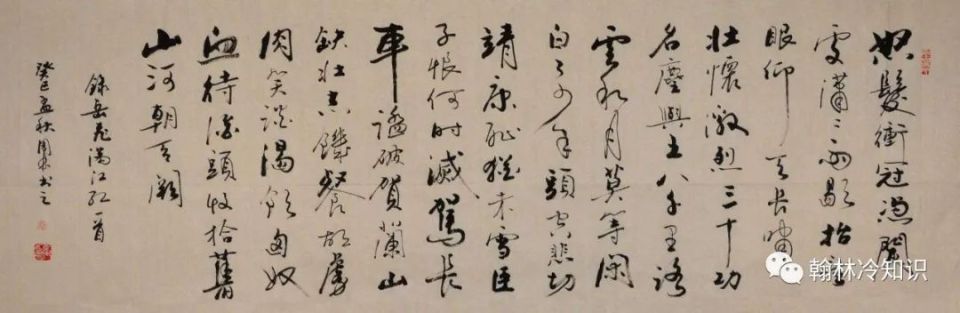 怒髮衝冠憑闌
處瀟瀟雨歇抬望
眼仰天長嘯
壯懷激烈三十功
名塵與土八千里路
雲和月莫等閑
白了少年頭空悲切
靖康恥猶未雪臣
子恨何時滅駕長
車踏破賀蘭山
缺壯志饑餐胡虜
肉笑談渴飲匈奴
血待從頭收拾舊
山河朝天闕
錄岳飛滿江紅一首
癸巳孟秋周書之
翰林冷知识